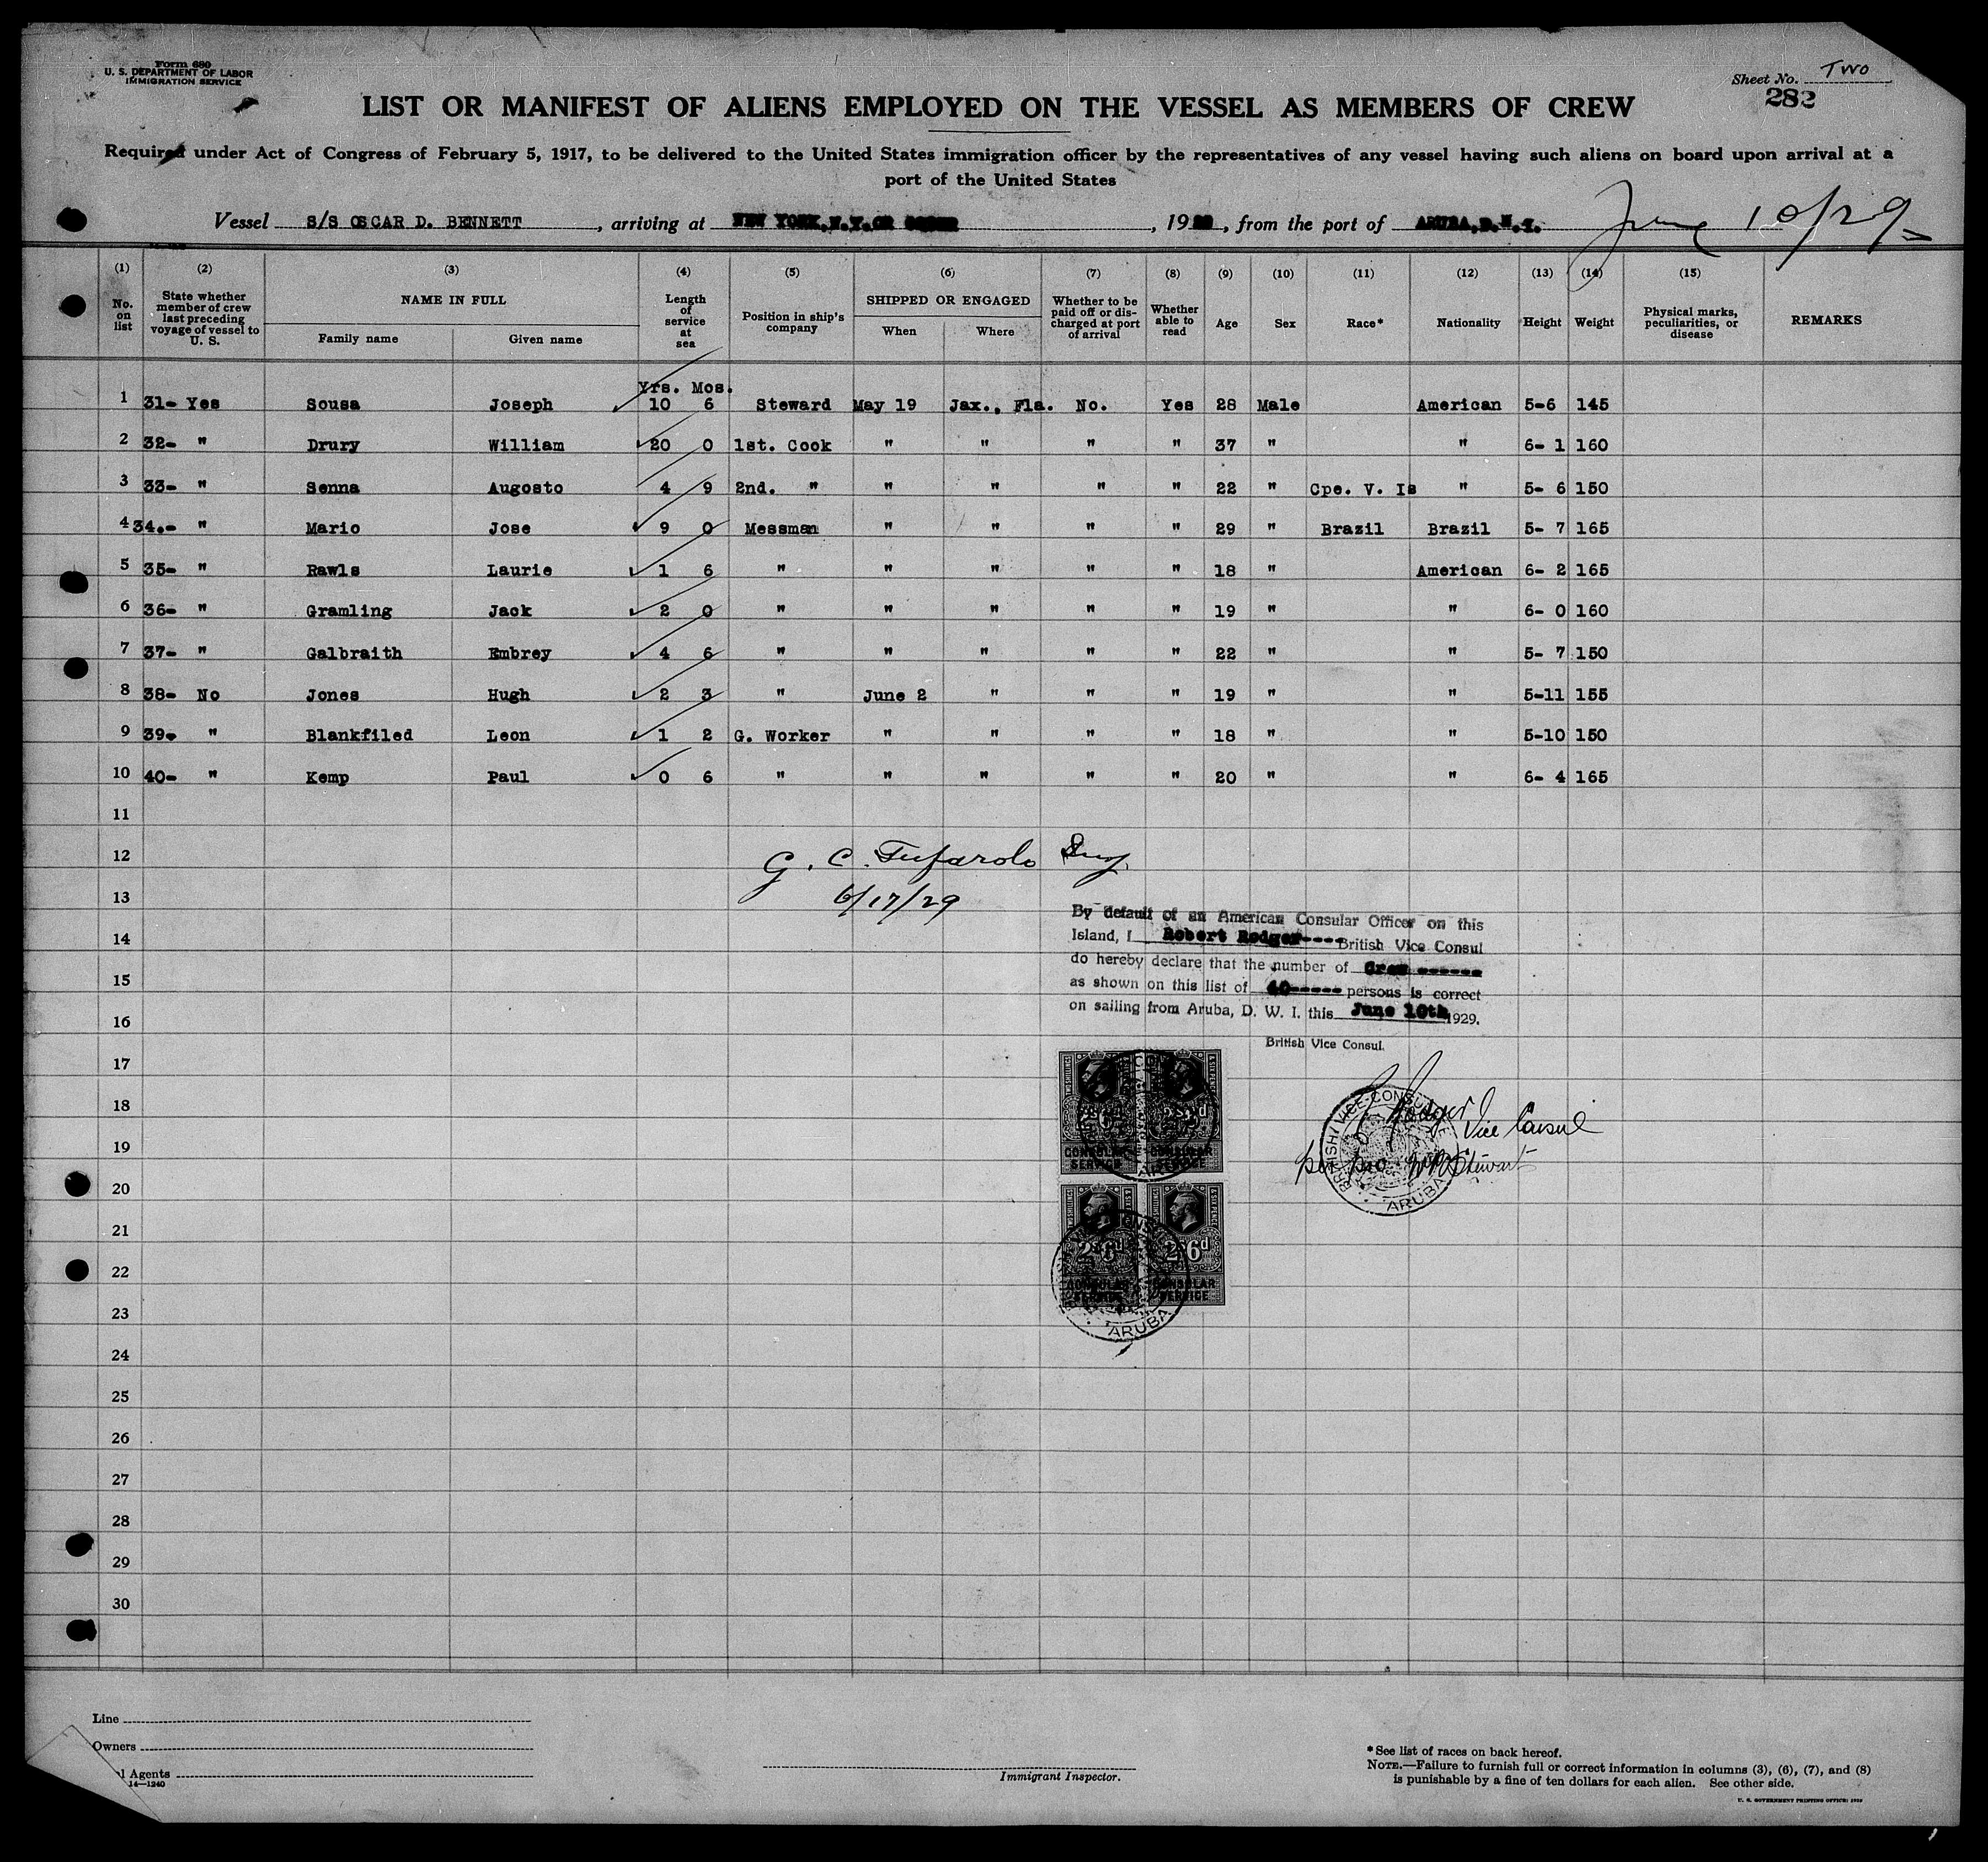 Form 680
U. S. DEPARTMENT OF LABOR
IMMIGRATION SERVICE
Sheet No. Two
282
LIST OR MANIFEST OF ALIENS EMPLOYED ON THE VESSEL AS MEMBERS OF CREW
Required under Act of Congress of February 5, 1917, to be delivered to the United States immigration officer by the representatives of any vessel having such aliens on board upon arrival at a
port of the United States
Vessel S/S OSCAR D. BENNETT, arriving at NEW YORK, N.Y. OR, 19, from the port of ARUBA, D.W.I. June 10/29
(1) (2) (3) (4) (5) (6) (7) (8) (9) (10) (11) (12) (13) (14) (15)
No. on list
State whether member of crew last preceding voyage of vessel to U. S.
NAME IN FULL
Family name Given name
Length of service at sea
Position in ship's company
SHIPPED OR ENGAGED
When Where
Whether to be paid off or discharged at port of arrival
Whether able to read
Age Sex Race* Nationality Height Weight
Physical marks, peculiarities, or disease
REMARKS
Yrs. Mos.
1 31- Yes Sousa Joseph 10 6 Steward May 19 Jax., Fla. No. Yes 28 Male American 5-6 145
2 32- " Drury William 20 0 1st. Cook " " " " 37 " " 6- 1 160
3 33- " Senna Augosto 4 9 2nd. " " " " " 22 " Cpe. V. Is " 5- 6 150
4 34.- " Mario Jose 9 0 Messman " " " " 29 " Brazil Brazil 5- 7 165
5 35- " Rawls Laurie 1 6 " " " " " 18 " American 6- 2 165
6 36- " Gramling Jack 2 0 " " " " " 19 " " 6- 0 160
7 37- " Galbraith Embrey 4 6 " " " " " 22 " " 5- 7 150
8 38- No Jones Hugh 2 3 " June 2 " " " 19 " " 5-11 155
9 39- " Blankfiled Leon 1 2 G. Worker " " " " 18 " " 5-10 150
10 40- " Kemp Paul 0 6 " " " " " 20 " " 6- 4 165
11
12
G. C. Tufarolo
13
6/17/29
By default of an American Consular Officer on this
14
Island, I Robert Rodger---- British Vice Consul
do hereby declare that the number of Crew ------
15
as shown on this list of 40----- persons is correct
on sailing from Aruba, D. W. I. this June 10th 1929.
16
British Vice Consul.
17
18
Rodger
Vice Consul
19
per pro Stewart
BRITISH VICE-CONSUL
ARUBA
CONSULAR SERVICE
20
21
TWO SHILLINGS & SIX PENCE
2s6d 2s6d
22
CONSULAR SERVICE
CONSULAR SERVICE
23
ARUBA
24
25
26
27
28
29
30
Line
Owners
l Agents
14—1240
Immigrant Inspector.
* See list of races on back hereof.
NOTE.—Failure to furnish full or correct information in columns (3), (6), (7), and (8)
is punishable by a fine of ten dollars for each alien. See other side.
U. S. GOVERNMENT PRINTING OFFICE: